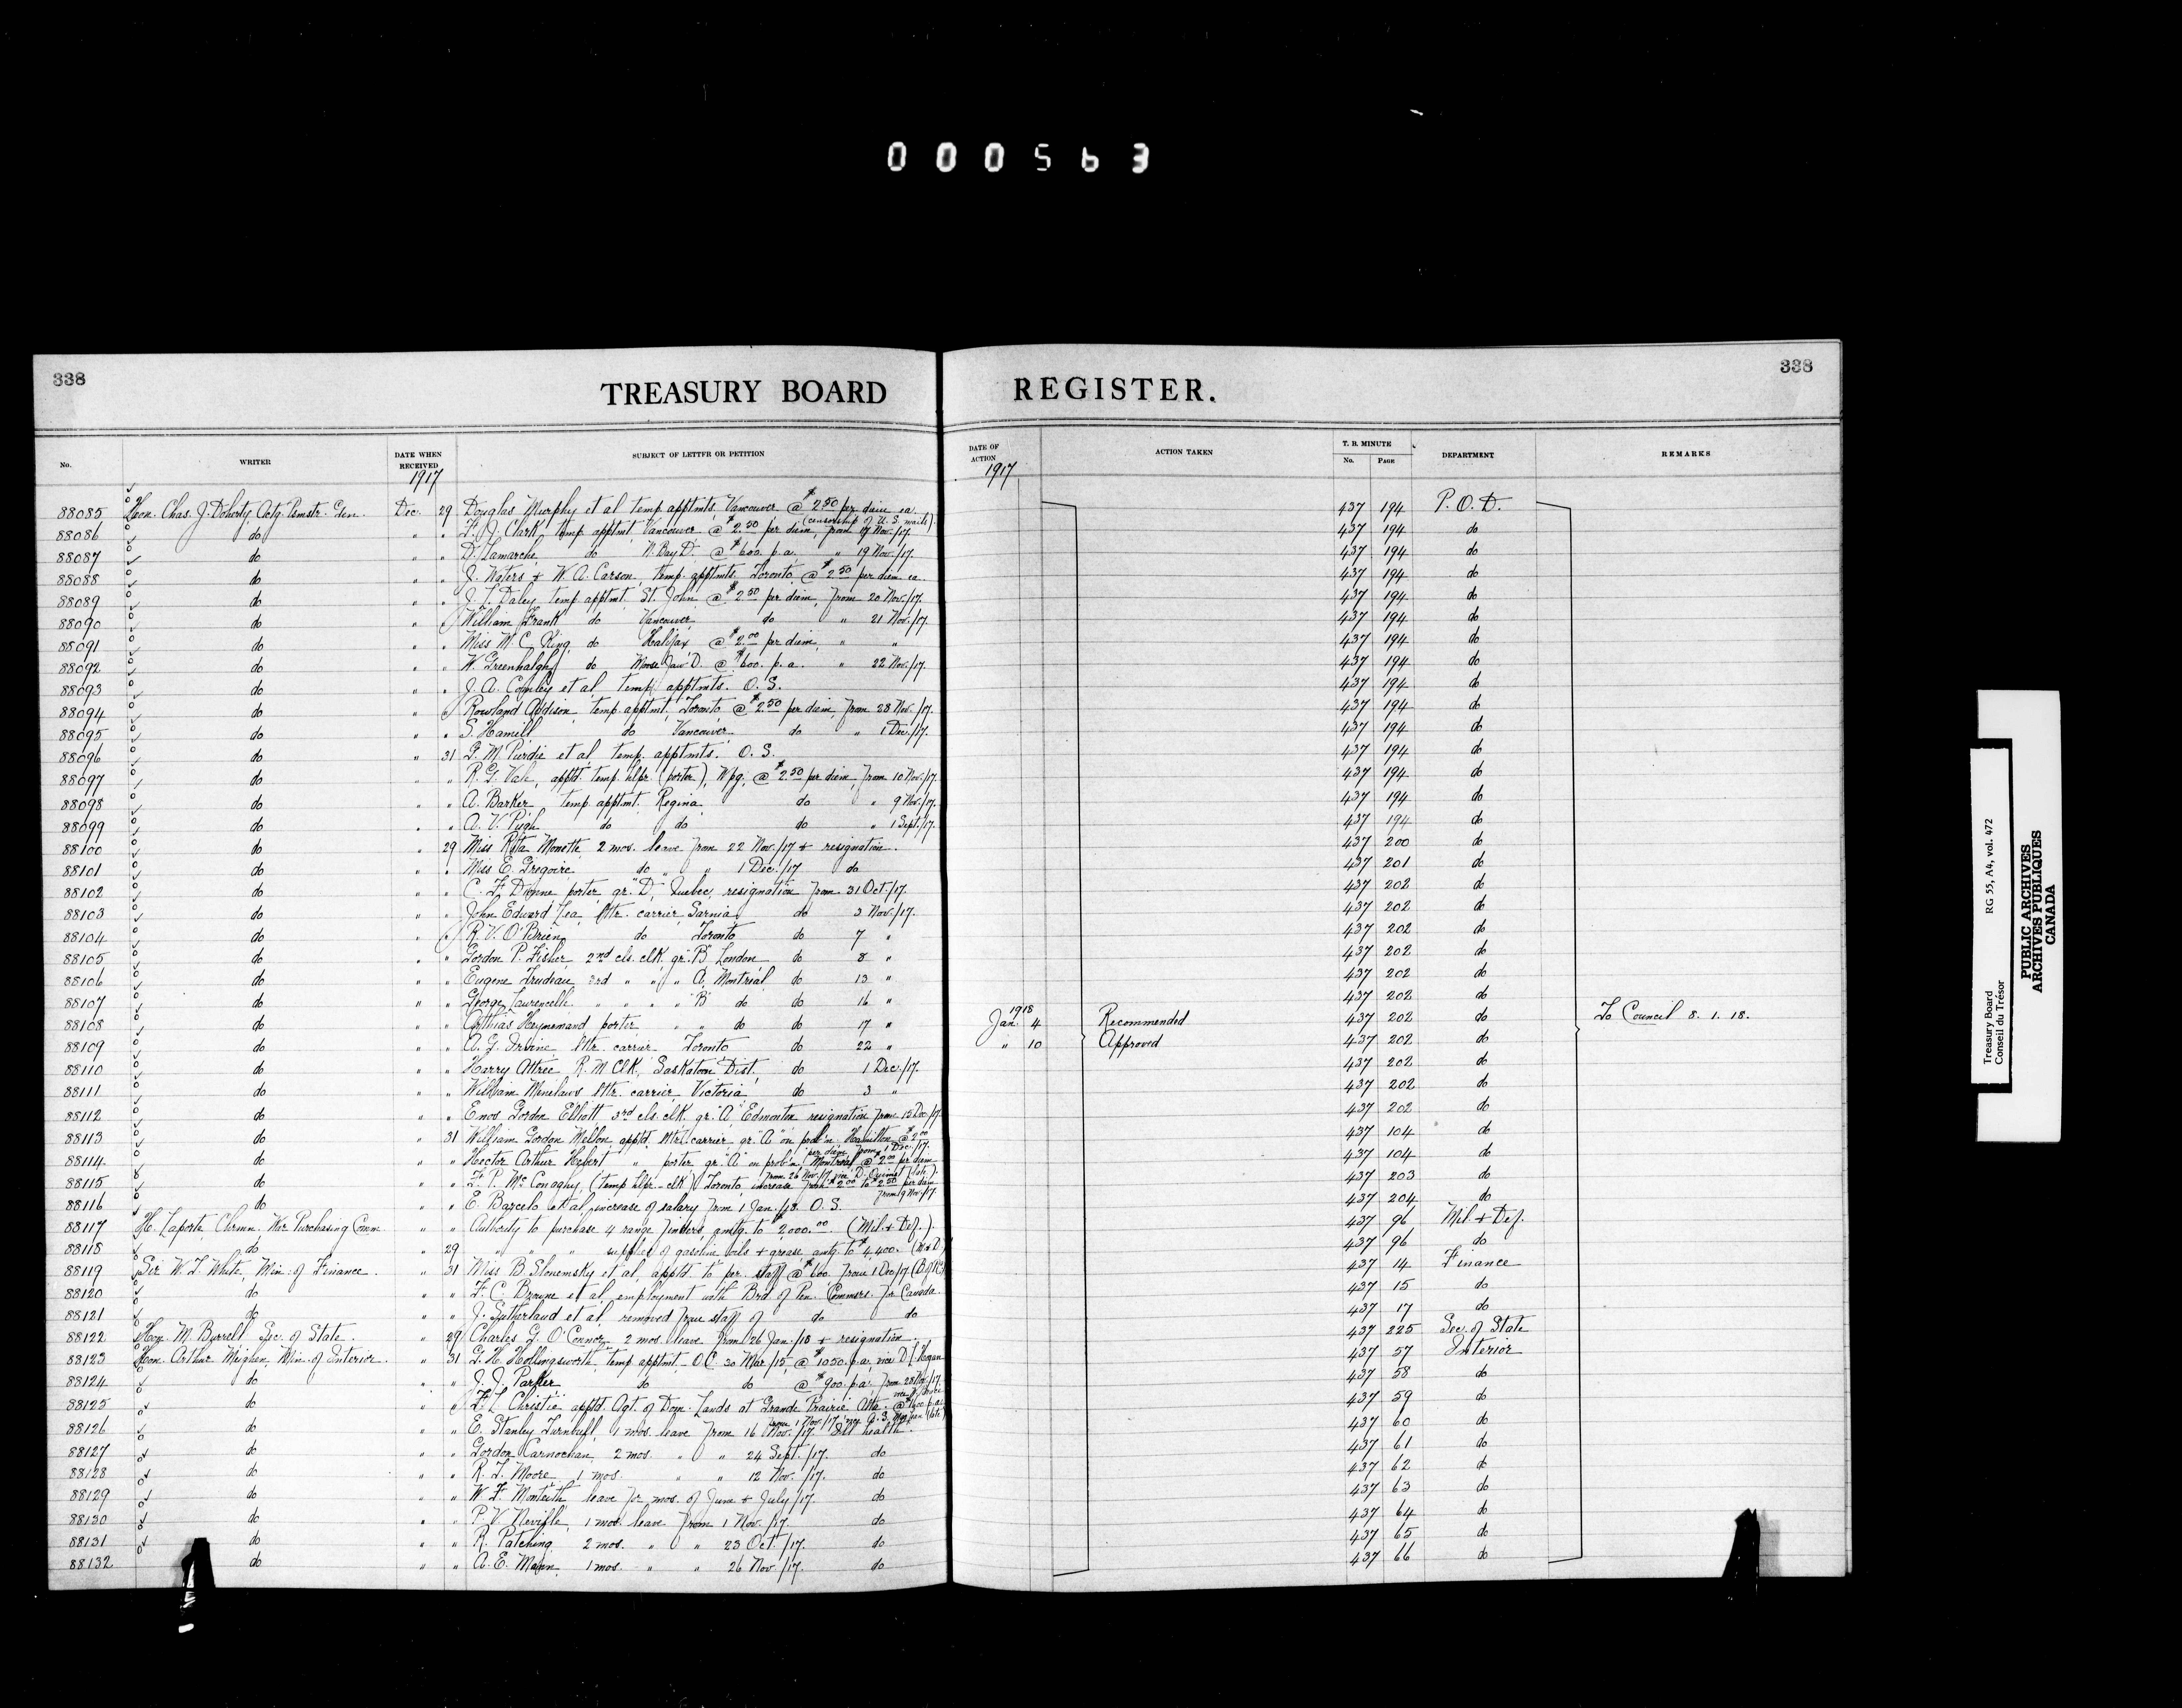 000563
338
TREASURY BOARD REGISTER.
338
No. WRITER DATE WHEN RECEIVED SUBJECT OF LETTER OR PETITION DATE OF ACTION ACTION TAKEN T. B. MINUTE No. PAGE DEPARTMENT REMARKS
1917 1917
88085 Hon. Chas. J. Doherty, Actg. Pmstr. Gen. Dec. 29 Douglas Murphy et al temp. apptmts, Vancouver @ $2.50 per diem ea. 437 194 P.O.D.
(censorship of U.S. mails)
88086 do " " F. J. Clark, temp. apptmt, Vancouver @ $2.50 per diem, from 17 Nov./17. 437 194 do
88087 do " " D. Lamarche, do N. Bay D. @ $600. p.a. " 19 Nov./17. 437 194 do
88088 do " " J. Waters & W. A. Carson, temp. apptmts. Toronto @ $2.50 per diem ea. 437 194 do
88089 do " " J. T. Daley temp apptmt. St. John @ $2.50 per diem, from 20 Nov./17. 437 194 do
88090 do " " William Frank do Vancouver, do " 21 Nov./17. 437 194 do
88091 do " " Miss M. C. King, do Halifax @ $2.00 per diem, " " 437 194 do
88092 do " " W. Greenhalgh do Moose Jaw D. @ $600. p.a. " 22 Nov./17. 437 194 do
88093 do " " J. A. Conley et al, temp. apptmts. O.S. 437 194 do
88094 do " " Rowland Addison, temp. apptmt, Toronto, @ $2.50 per diem, from 28 Nov./17. 437 194 do
88095 do " " S. Hamill do Vancouver do " 1 Dec./17. 437 194 do
88096 do " 31 G. M. Purdie et al, temp. apptmts. O.S. 437 194 do
88097 do " " R. G. Vale, apptd. temp. hlpr. (porter), Wpg. @ $2.50 per diem, from 10 Nov./17. 437 194 do
88098 do " " A. Barker, temp. apptmt. Regina do " 9 Nov./17. 437 194 do
88099 do " " A. V. Pugh do do do " 1 Sept./17. 437 194 do
88100 do " 29 Miss Rita Monette, 2 mos. leave from 22 Nov./17 & resignation. 437 200 do
88101 do " " Miss E. Gregoire, do " " 1 Dec./17 do 437 201 do
88102 do " " C. F. Dionne porter, gr. "D", Quebec, resignation from 31 Oct./17. 437 202 do
88103 do " " John Edward Lea, lttr. carrier, Sarnia do 3 Nov./17. 437 202 do
88104 do " " R. V. O'Brien, do Toronto do 7 " 437 202 do
88105 do " " Gordon P. Fisher, 2nd cls. clk. gr. "B" London do 8 " 437 202 do
88106 do " " Eugene Trudeau 3rd " " " A, Montreal do 13 " 437 202 do
88107 do " " George Laurencelle " " " " "B" do do 16 " 437 202 do
88108 do " " Heynemand porter " " do do 17 " 1918 Jan. 4 Recommended 437 202 do To Council 8. 1. 18.
88109 do " " A. G. Irvine lttr. carrier Toronto do 22 " " 10 Approved 437 202 do
88110 do " " Harry Attree, R. M. Clk., Saskatoon Dist., do 1 Dec./17. 437 202 do
88111 do " " William Menelaws lttr. carrier, Victoria, do 3 " 437 202 do
88112 do " " Enos Gordon Elliott 3rd cls. clk. gr. "A" Edmonton resignation from 15 Dec./17. 437 202 do
88113 do " 31 William Gordon Mellon, apptd. lttr. carrier gr. "A" on prob'n. Hamilton @ $2.00 437 104 do
per diem, from 1 Dec./17.
88114 do " " Hector Arthur Hebert " porter gr. "A" on prob'n. Montreal @ $2.00 per diem 437 104 do
from 26 Nov./17, vice D. Ouimet (late).
88115 do " " F. P. McConaghy, (temp. hlpr.-clk) Toronto, increase from $2.00 to $2.50 per diem 437 203 do
from 9 Nov./17.
88116 do " " E. Barcelo et al, increase of salary from 1 Jan./18. O.S. 437 204 do
88117 H. Laporte, Chrmn. War Purchasing Comm. " " Authority to purchase 4 range finders, amtg. to $2,000.00 (Mil. & Def.). 437 96 Mil. & Def.
88118 do " 29 " " " supplies of gasoline, oils & grease, amtg. to $4,400. (M & D) 437 96 do
88119 Sir W. T. White, Min. of Finance. " 31 Miss B. Slonemsky et al, apptd. to per. staff @ $600. from 1 Dec/17 437 14 Finance
88120 do " " F. C. Browne et al, employment with Brd. of Pen. Commsrs. for Canada. 437 15 do
88121 do " " J. Sutherland et al, removed from staff of do do 437 17 do
88122 Hon. M. Burrell Sec. of State. " 29 Charles G. O'Connor 2 mos. leave from 26 Jan./18 & resignation. 437 225 Sec. of State
88123 Hon. Arthur Meighen, Min. of Interior. " 31 G. H. Hollingsworth, temp. apptmt. - O.C. 30 Mar./15, @ $1050. p.a., vice D. L. 437 57 Interior
88124 do " " J. J. Parker do do @ $900. p.a. from 28 Nov./17. 437 58 do
88125 do " " F. L. Christie apptd. Agt. of Dom. Lands at Grande Prairie Alta. @ $1600. p.a. 437 59 do
from 1 Nov./17 vice (late)
88126 do " " E. Stanley Turnbull, 1 mos. leave from 16 Nov./17. Ill health. 437 60 do
88127 do " " Gordon Carnochan, 2 mos. " " 24 Sept./17. do 437 61 do
88128 do " " R. T. Moore, 1 mos. " " 12 Nov./17. do 437 62 do
88129 do " " W. F. Monteith leave for mos. of June & July/17. do 437 63 do
88130 do " " P. V. Neville, 1 mos. leave from 1 Nov./17. do 437 64 do
88131 do " " R. Patching 2 mos. " " 23 Oct./17. do 437 65 do
88132 do " " A. E. Mann, 1 mos. " " 26 Nov./17. do 437 66 do
Treasury Board RG 55, A4, vol. 472
Conseil du Trésor
PUBLIC ARCHIVES
ARCHIVES PUBLIQUES
CANADA